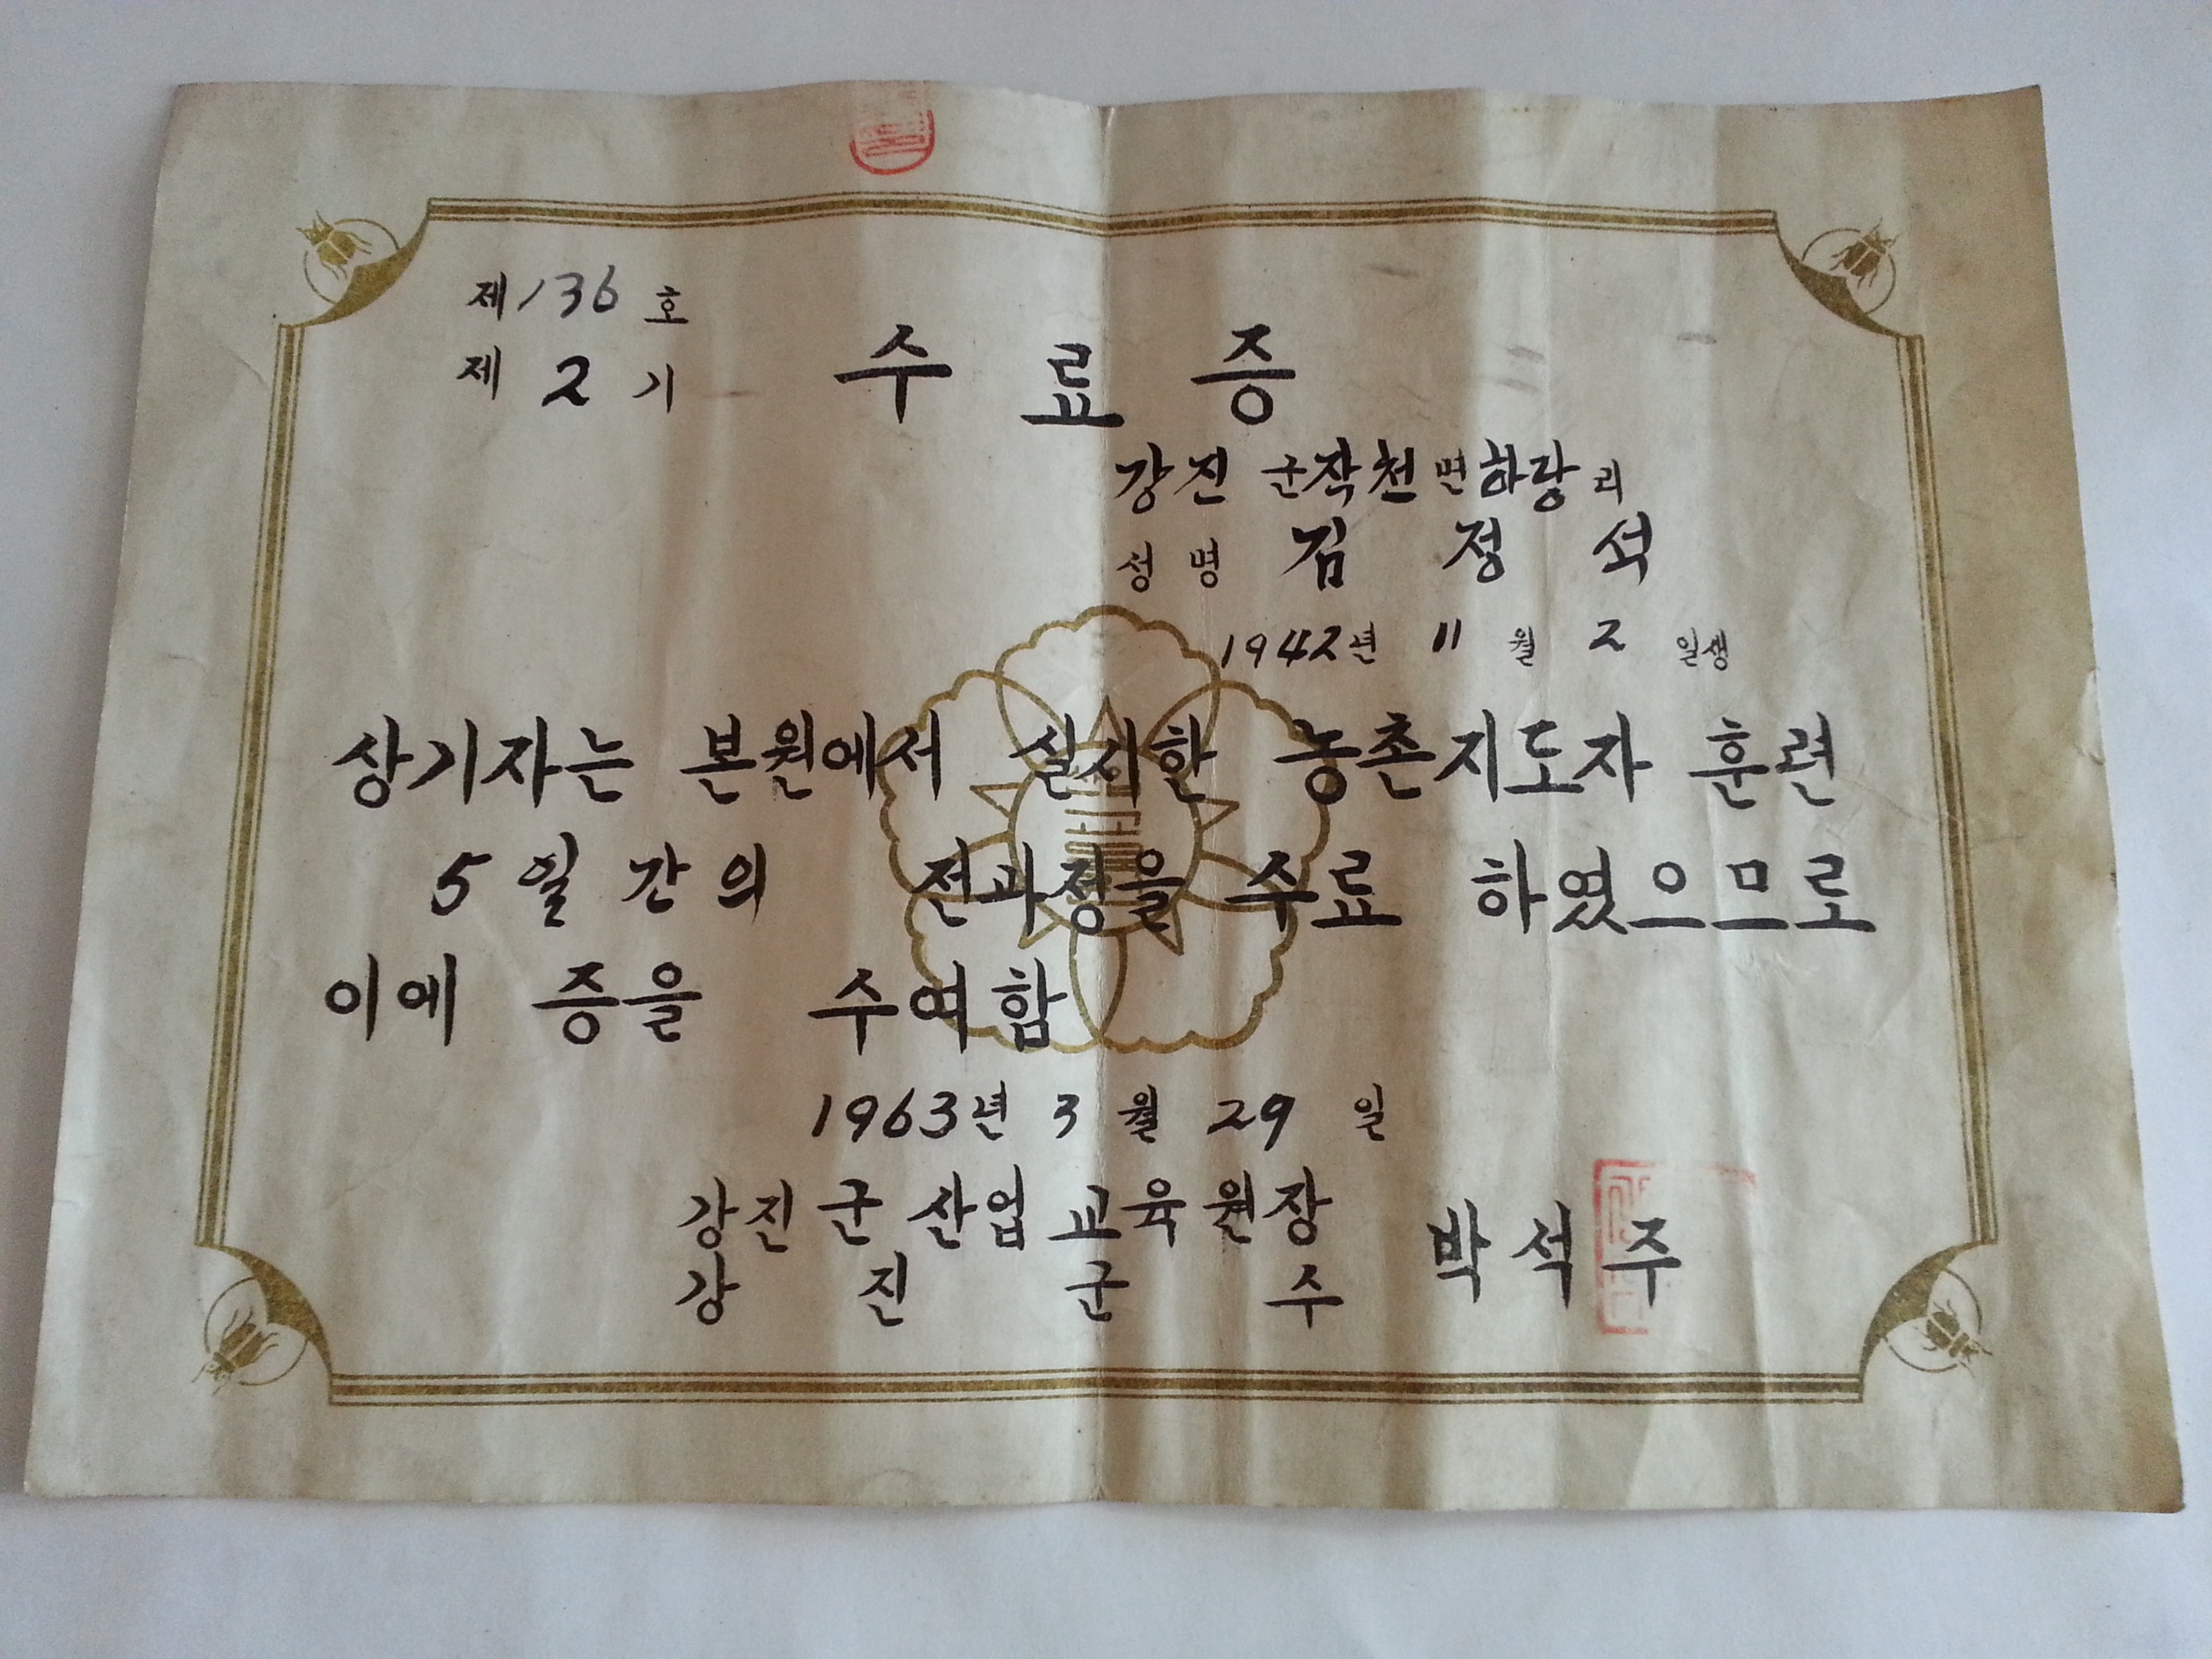 제 136 호
제 2 기
수 료 증
강진 군 작천 면 하랑 리
성 명 김 정 석
1942년 11 월 2 일생
상기자는 본원에서 실시한 농촌지도자 훈련
5 일 간의 전과정을 수료 하였으므로
이에 증을 수여함
1963년 3 월 29 일
강진군 산업 교육 원장
강 진 군 수
박 석 주